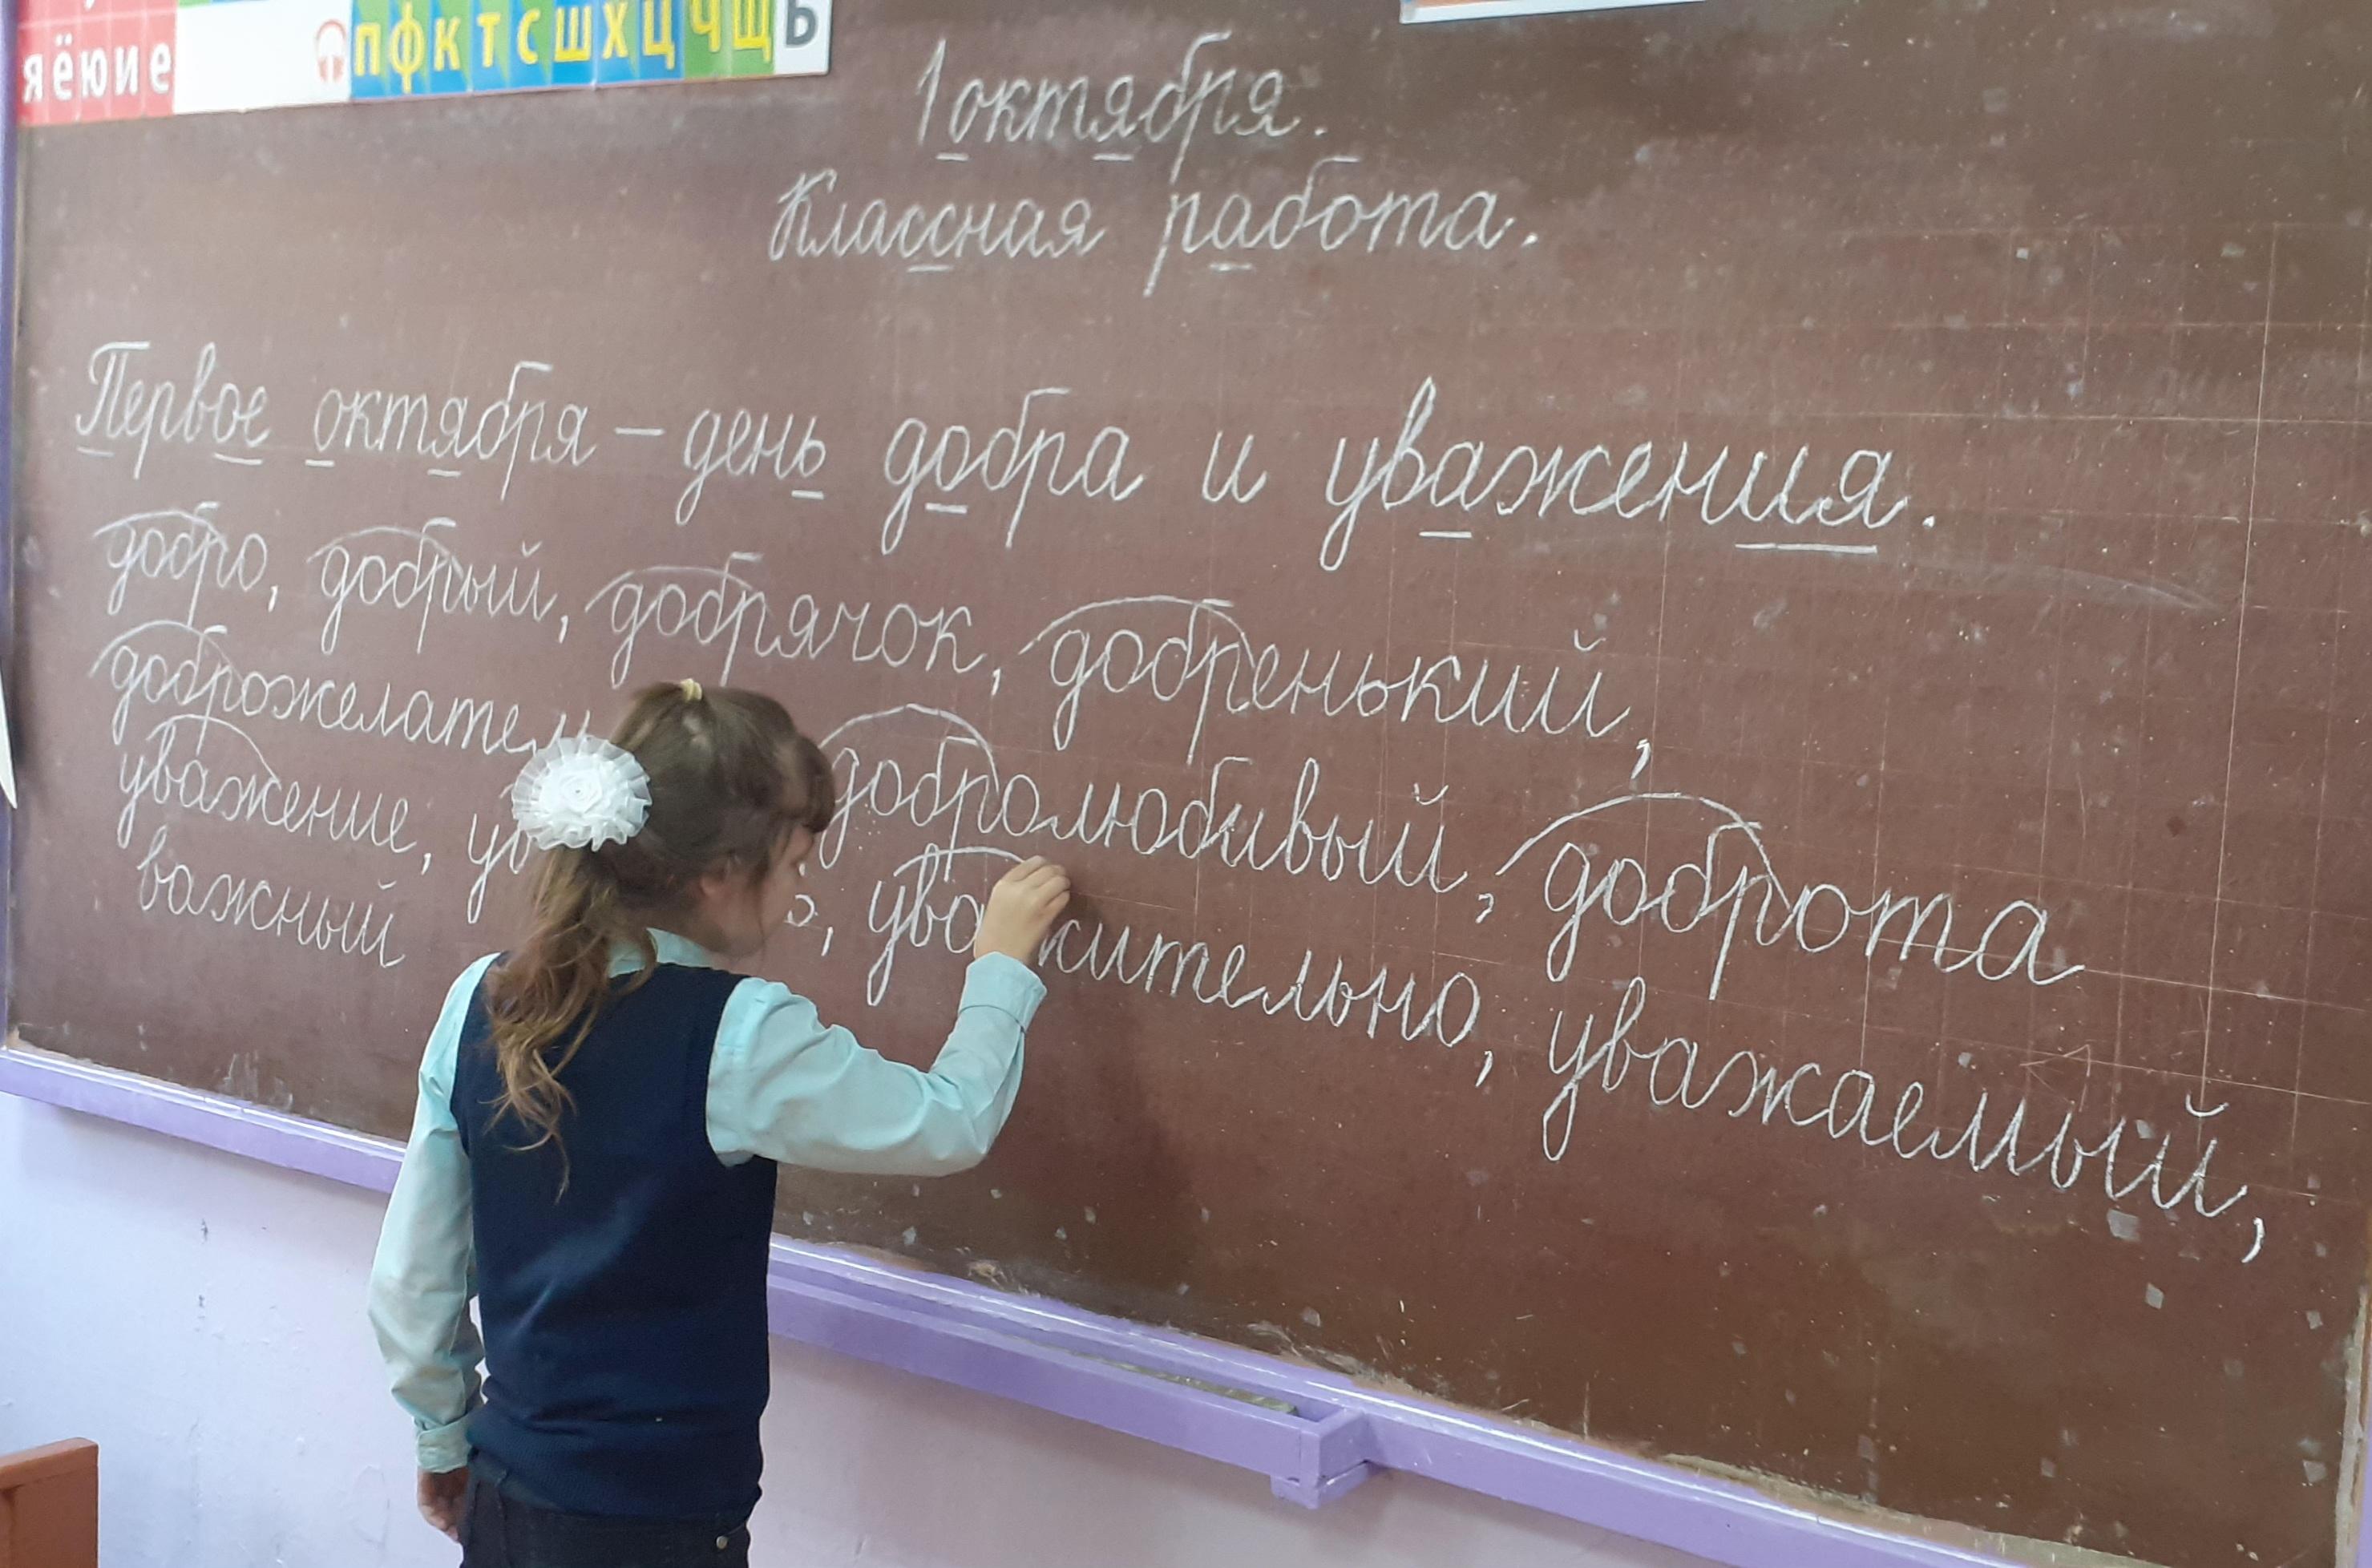 я ё ю и е
п ф к т с ш х ц ч щ ь
1 октября.
Классная работа.
Первое октября – день добра и уважения.
добро, добрый, добрячок, добренький,
доброжелатель добролюбивый, доброта
уважение, уважительно, уважаемый,
важный